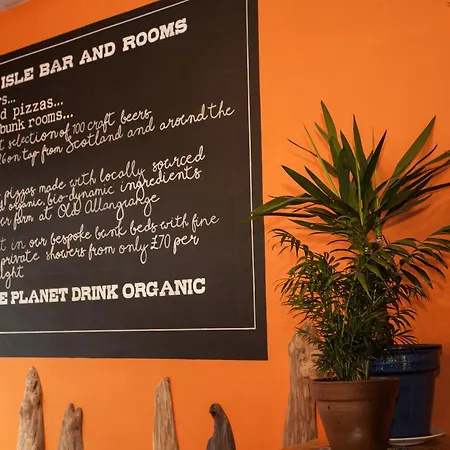 ISLE BAR AND ROOMS
rs...
d pizzas...
bunk rooms...
t selection of 100 craft beers
on tap from Scotland and around the
pizzas made with locally sourced
organic, bio-dynamic ingredients
er farm at Old Allangrange
t in our bespoke bunk beds with fine
private showers from only £70 per
ight
E PLANET DRINK ORGANIC